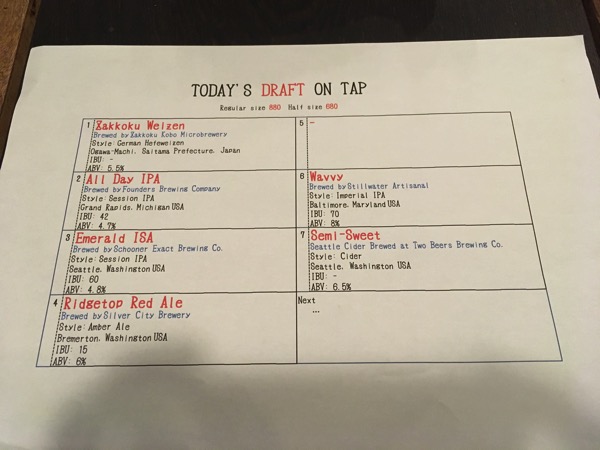 TODAY'S DRAFT ON TAP
Regular size 880 Half size 680
1 Zakkoku Weizen
Brewed by Zakkoku Kobo Microbrewery
Style: German Hefeweizen
Ogawa-Machi, Saitama Prefecture, Japan
IBU: -
ABV: 5.5%
2 All Day IPA
Brewed by Founders Brewing Company
Style: Session IPA
Grand Rapids, Michigan USA
IBU: 42
ABV: 4.7%
3 Emerald ISA
Brewed by Schooner Exact Brewing Co.
Style: Session IPA
Seattle, Washington USA
IBU: 60
ABV: 4.8%
4 Ridgetop Red Ale
Brewed by Silver City Brewery
Style: Amber Ale
Bremerton, Washington USA
IBU: 15
ABV: 6%
5 -
6 Wavvy
Brewed by Stillwater Artisanal
Style: Imperial IPA
Baltimore, Maryland USA
IBU: 70
ABV: 8%
7 Semi-Sweet
Seattle Cider Brewed at Two Beers Brewing Co.
Style: Cider
Seattle, Washington USA
IBU: -
ABV: 6.5%
Next
...